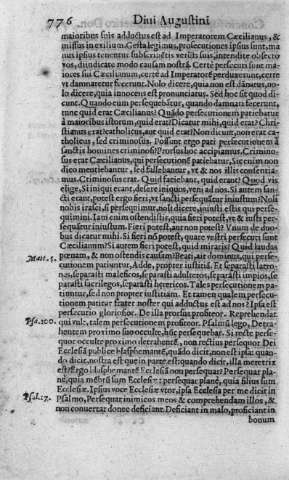 776 Diui Augustini
maioribus suis adductus est ad Imperatorem Cæcilianus, &
missus in exilium. Gesta legimus, prosecutiones ipsius sunt, ma
nus ipsius tenentur
dic modo causam nostrã. Certe persecuti sunt maio
res sui Cæcilianum, certè ad Imperatorẽ perduxerunt, certè
vt damnaretur fecerunt. Nolo dicere, quia non est dãnatus, no-
lo dicere, quia innocens est pronunciatus. Sed hoc est quod di-
cunt. Quando eum persequebãtur, quando damnari fecerunt,
tunc quid erat Cæcilianus? Quãdo persecutionem patiebatur
à maioribus istorum, quid erat? Dicatur mihi, quid erat? Chri-
stianus erat: catholicus, aut quid erat? Non dicunt, non erat ca-
tholicus, sed criminosus. Possunt ergo pati persecutionem à
sanctis homines criminosi? Prorsus hoc accipiamus. Crimino-
sus erat Cæcilianus, qui persecutionẽ patiebatur. Si enim non
dico mentiebantur, sed fallebantur, vt & nos illis consentia-
mus. Criminosus erat. Quid fatiebant, quid erant? Quod vis
elige, Si iniqui erant, desere iniquos, veni ad nos. Si autem san-
cti erant, potest ergo fieri, vt sancti persequantur iniustum? No-
bis irasci, si persequimur, nos dicere, iniusti estis qui perse-
quimini. Iam enim ostendistis, quia fieri potest, vt & iusti per-
sequantur iniustum. Fieri potest, aut non potest? Vnum de duo-
bus dicatur mihi. Si fieri nõ potest, quare vestri persecuti sunt
Cæcilianum? Si autem fieri potest, quid miraris? Quid laudas
Matt. 5. pœnam, & non ostendis causam? Beati, ait dominus, qui perse-
cutionem patiuntur, Adde, propter iustitiã. Et separasti latro-
nes, separasti maleficos, separasti adulteros, separasti impios, se
parasti sacrilegos, separasti hereticos. Tales persecutionem pa-
tiuntur, sed non propter iustitiam. Et tamen qualem persecu-
tionem patitur frater noster qui adductus est ad nos? Ipsa est
persecutio gloriosior. De illa prorsus profiteor. Reprehendat
Psa. 100. qui vult, talem persecutionem profiteor. Psalmũ lego, Detra-
hentem proximo suo occultè, hunc persequebar. Si rectè perse-
quor occultè proximo detrahentẽ, non rectius persequor Dei
Ecclesiã publicè blasphemantẽ, quãdo dicit, non est ipsa: quan
do dicit, nostra est quæ in parte est: quando dicit, illa meretrix
est? Ergo blasphemantẽ Ecclesiã non persequar? Persequar pla-
nè, quia mẽbrũ sum Ecclesiæ: persequar planè, quia filius sum
Ecclesiæ. Ipsius voce Ecclesiæ vtor, ipsa Ecclesia per me dicit in
Psal. 17. Psalmo, Persequar inimicos meos & comprehendam illos, &
non conuertar donec deficiant. Deficiant in malo, proficiant in
bonum